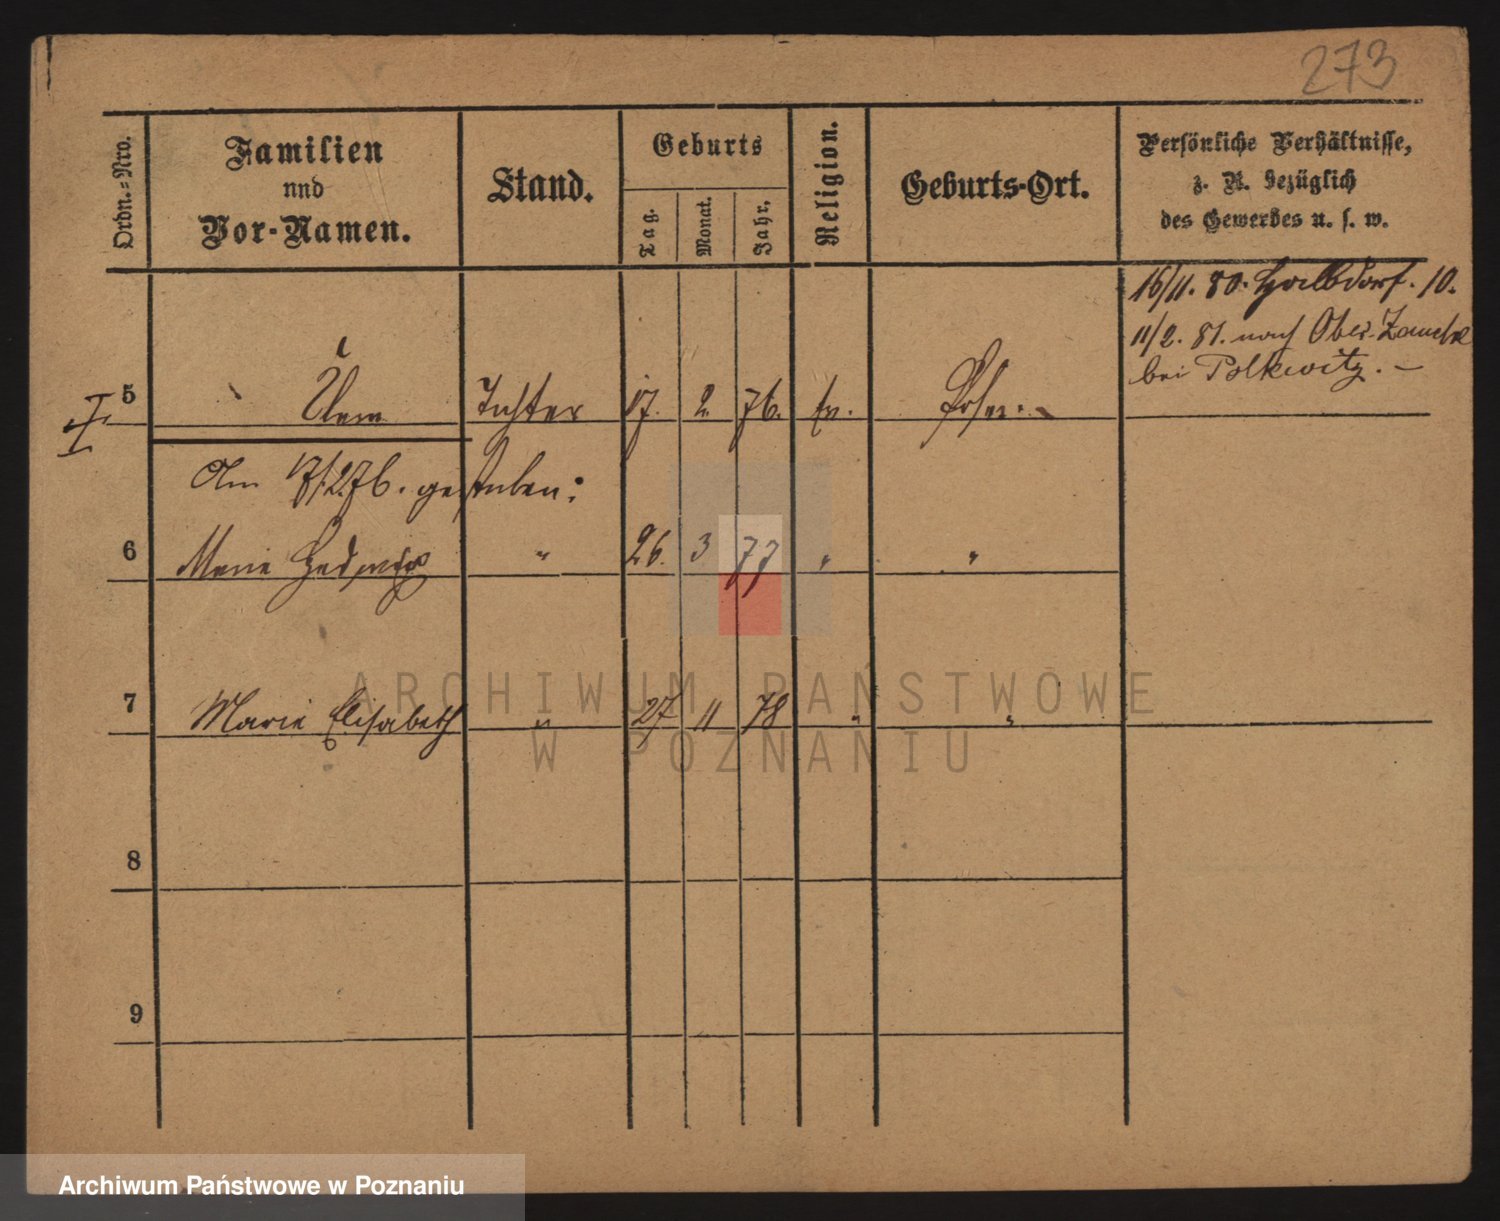 273
Ordn.=Nro.
Familien
und
Vor-Namen.
Stand.
Geburts
Tag.
Monat.
Jahr.
Religion.
Geburts-Ort.
Persönliche Verhältnisse,
z. B. bezüglich
des Gewerbes u. s. w.
16/11. 80. 10.
11/2. 81. nach Ober-
bei Polkwitz. —
5
Tochter
17. 2 76. ev. Posen.
I
Am 17/2.76. gestorben:
6
Marie Hedwig
" 26. 3 77 " "
7
Marie Elisabeth " 27 11 78 " "
8
9
ARCHIWUM PAŃSTWOWE
W POZNANIU
Archiwum Państwowe w Poznaniu